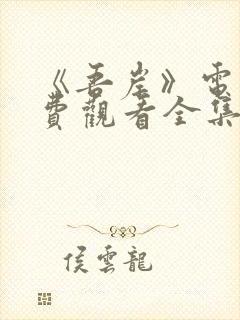 《吾岸》電
費觀看全集
侯雲龍